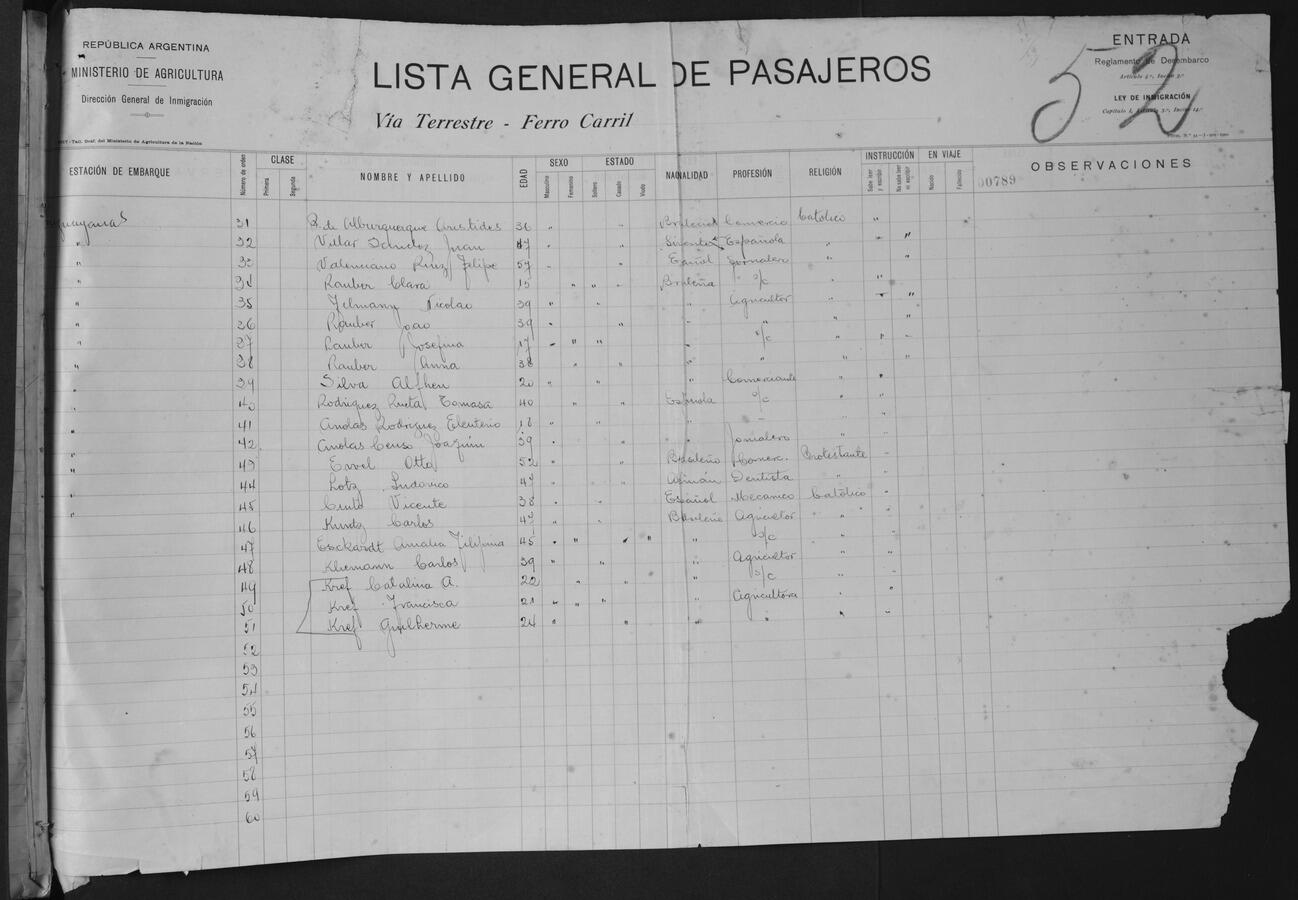 REPÚBLICA ARGENTINA
MINISTERIO DE AGRICULTURA
Dirección General de Inmigración
Tall. Gráf. del Ministerio de Agricultura de la Nación
LISTA GENERAL DE PASAJEROS
Vía Terrestre - Ferro Carril
ENTRADA
Reglamento de Desembarco
Artículo 5º, Inciso 3º
LEY DE INMIGRACIÓN
Capítulo I, Artículo 3º, Inciso 14º
52
00789
ESTACIÓN DE EMBARQUE Número de orden CLASE Primera Segunda NOMBRE Y APELLIDO EDAD SEXO Masculino Femenino ESTADO Soltero Casado Viudo NACIONALIDAD PROFESIÓN RELIGIÓN INSTRUCCIÓN Sabe leer y escribir No sabe leer ni escribir EN VIAJE Nacido Fallecido OBSERVACIONES
31 B. de Alburquerque Aristides 36 " " Comercio Católico "
" 32 Vilar Sanchez Juan 47 " " Española " " "
" 33 Valenciano Ruiz Felipe 57 " " Jornalero " "
" 34 Rauber Clara 15 " " " " Brasileña s/c "
" 35 Nicolao 39 " " " Agricultor " " "
" 36 Rauber Joao 39 " " " " " "
" 37 Rauber Josefina 17 " " " " s/c " " "
" 38 Rauber Anna 38 " " " " " "
" 39 Silva 20 " " " Comerciante " "
" 40 Rodriguez Tomasa 40 " " Española s/c " "
" 41 Rodriguez Eleuterio 18 " " " " "
" 42 Joaquin 39 " " " Jornalero " "
" 43 Otto 52 " " Brasileño Comerc. Protestante "
" 44 Lotz Ludovico 47 " " Alemán Dentista " "
" 45 Vicente 38 " " Español Mecanico Católico "
46 Carlos 47 " " Brasileño Agricultor " "
47 Amalia 45 " " " " " s/c " "
48 Kliemann Carlos 39 " " " Agricultor " "
49 Kref Catalina A. 22 " " " s/c " "
50 Kref Francisca 21 " " " " Agricultora " "
51 Kref Guilherme 24 " " " " " "
52
53
54
55
56
57
58
59
60